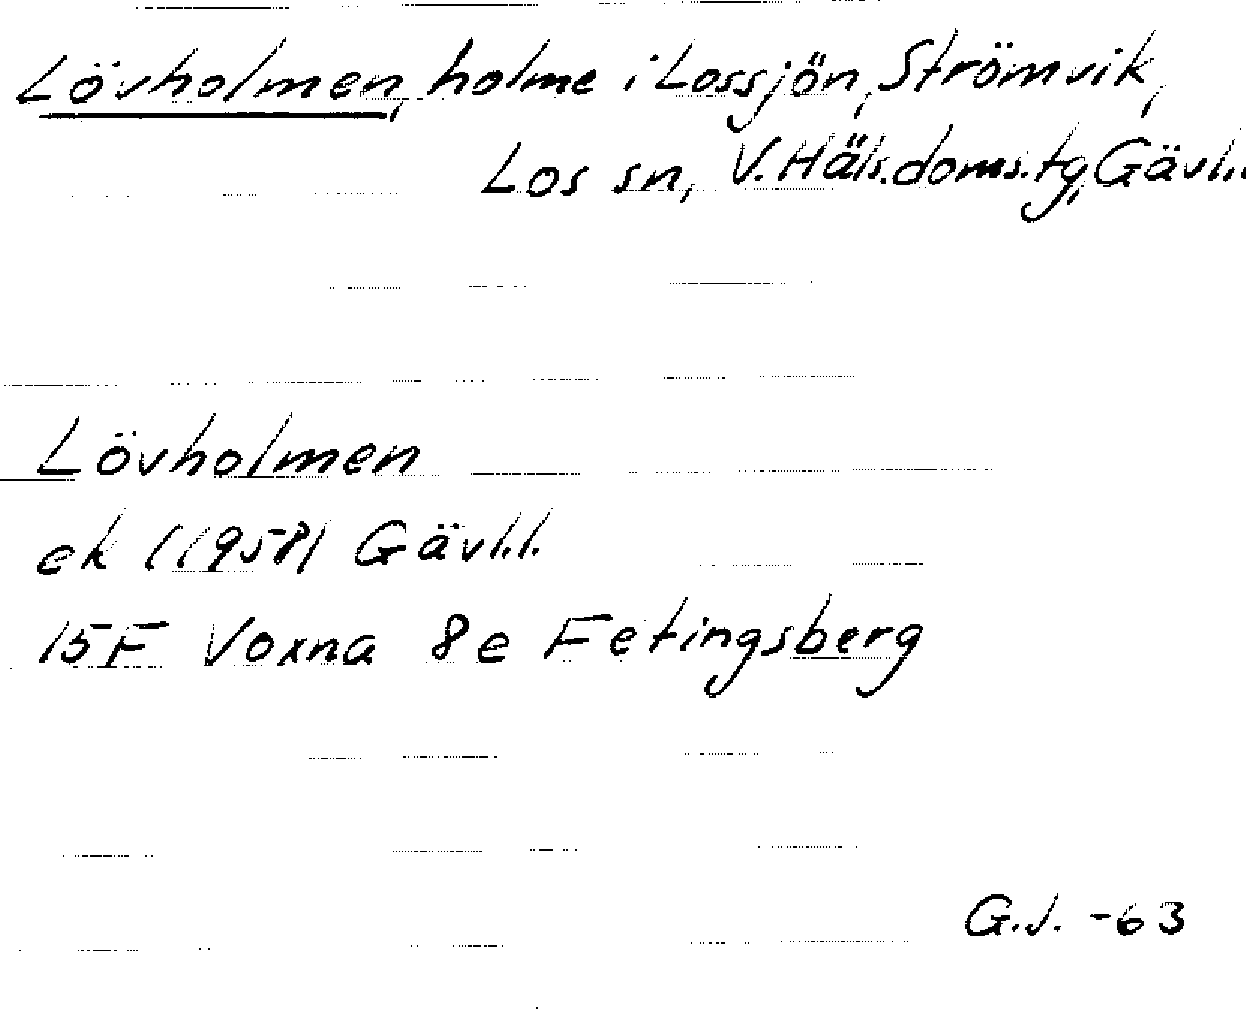 Lövholmen, holme i Lossjön, Strömvik,
Los sn, V. Häls. doms. tg, Gävl.l.
Lövholmen
ek (1958) Gävl.l.
15F Voxna 8e Fetingsberg
G.J. -63